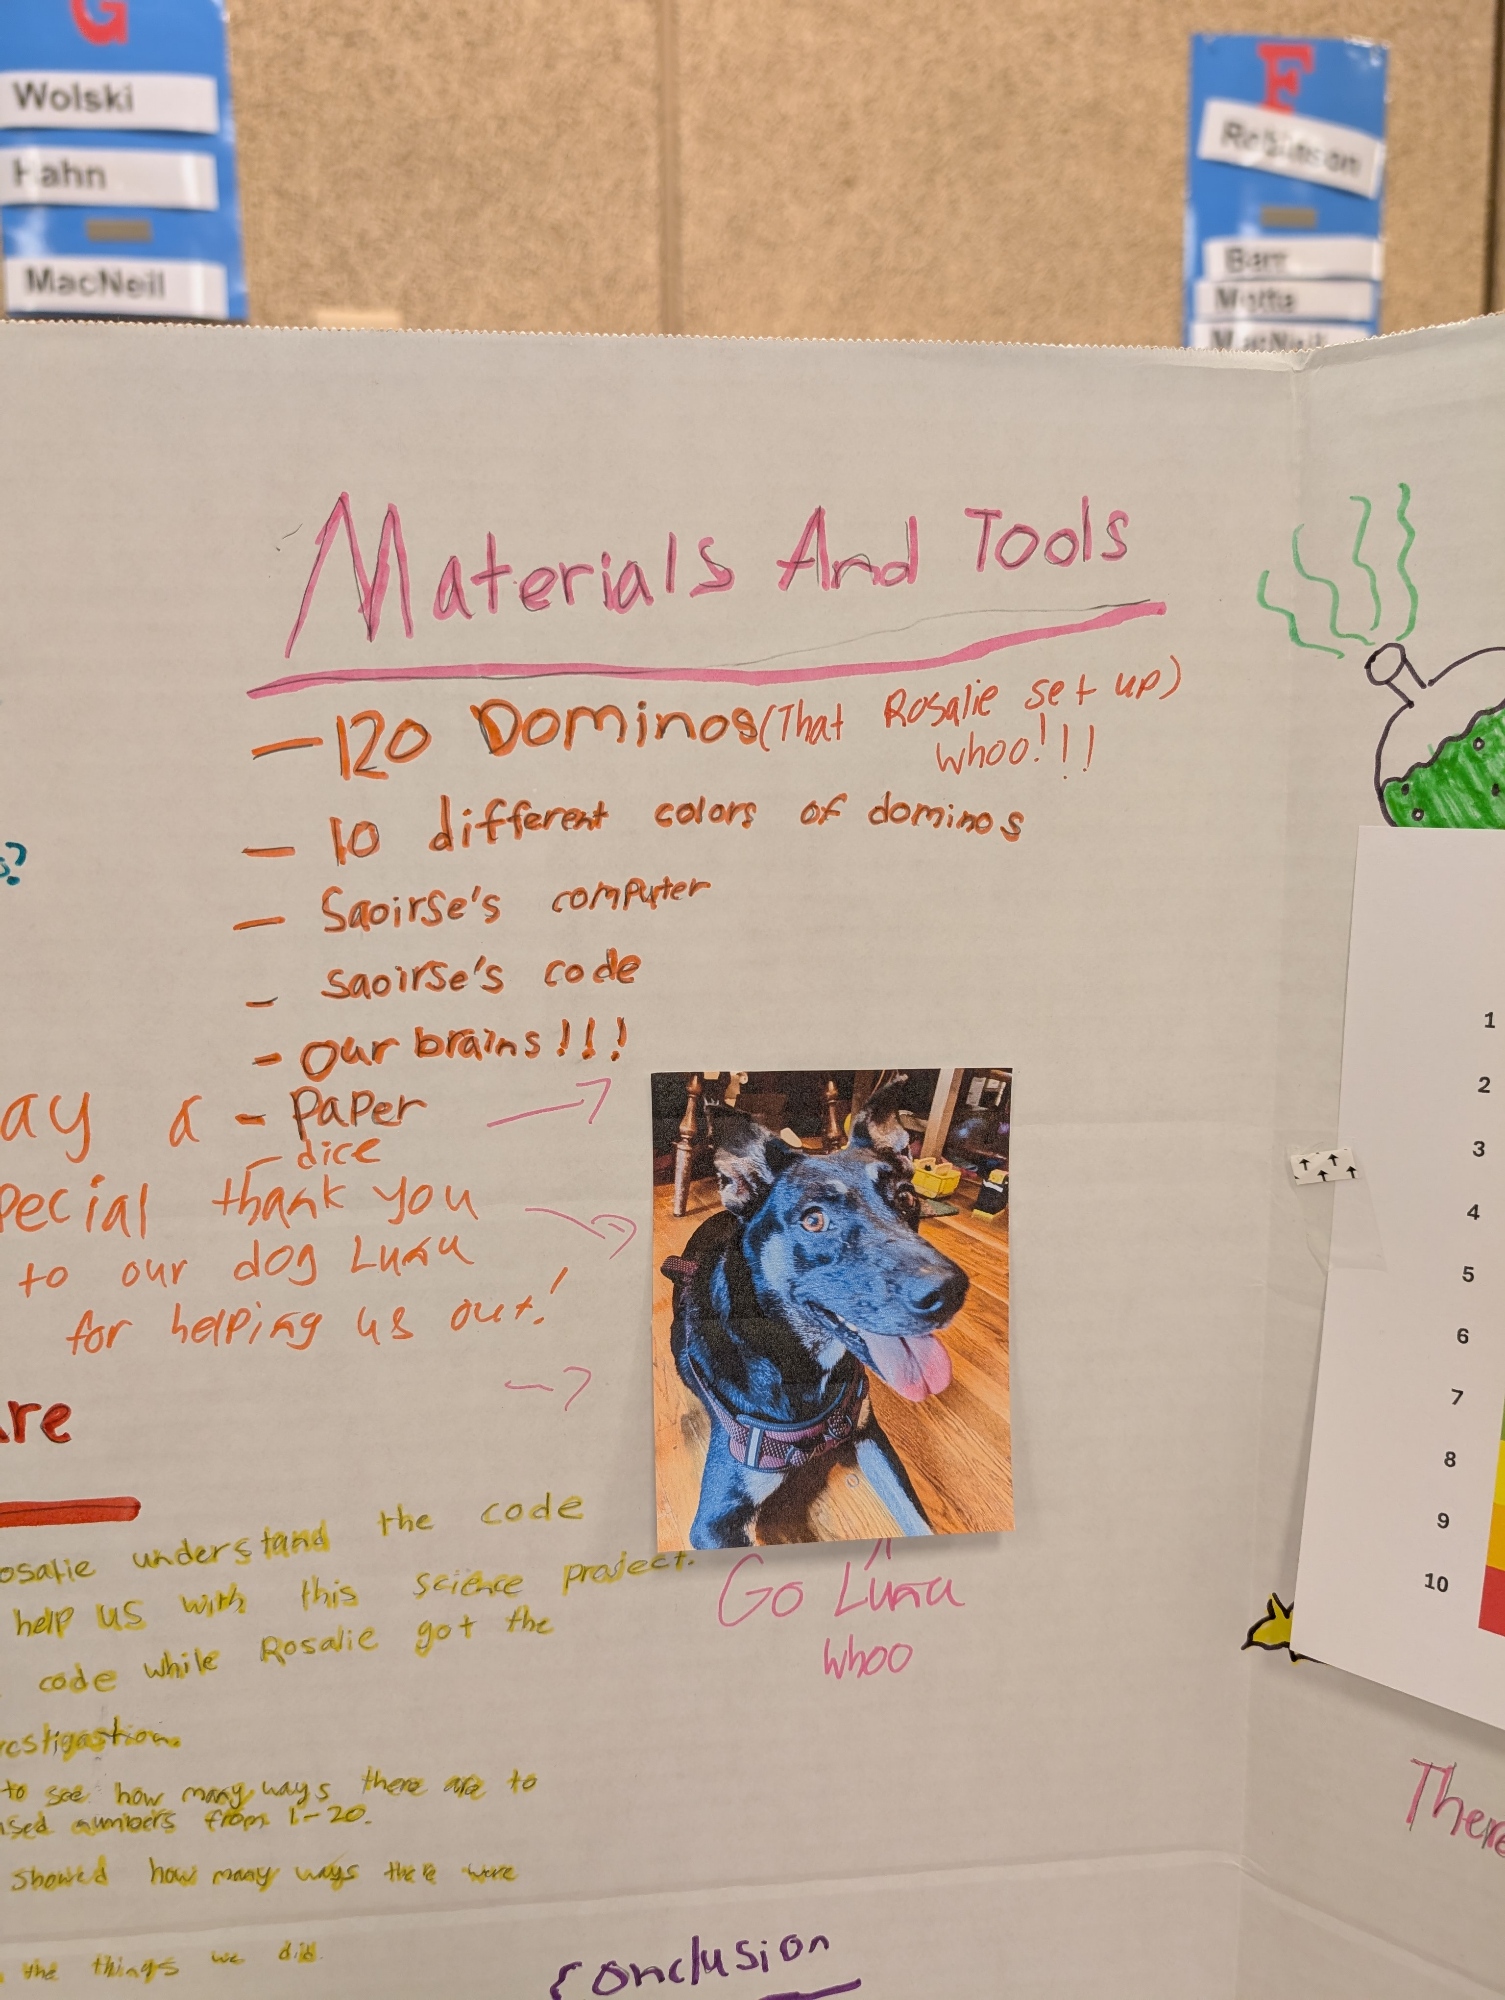 G
Wolski
Hahn
MacNeil
F
Robinson
Barr
Motta
MacNeil
Materials And Tools
- 120 Dominos (That Rosalie set up)
whoo!!!
- 10 different colors of dominos
- Saoirse's computer
- saoirse's code
- our brains!!!
- Paper
- dice
ay a
pecial thank you
to our dog Luna
for helping us out!
Go Luna
whoo
s?
are
osalie understand the code
help us with this science project.
code while Rosalie got the
vestigastion.
to see how many ways there are to
used numbers from 1-20.
showed how many ways there were
the things we did.
Conclusion
1
2
3
4
5
6
7
8
9
10
There